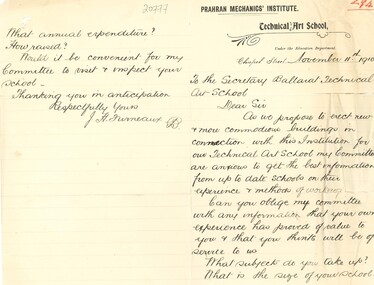 PRAHRAN MECHANICS' INSTITUTE.
Technical Art School,
Under the Education Department.
Chapel Street, November 11th 1910
To the Secretary Ballarat Technical
Art School
Dear Sir
As we propose to erect new
& more commodious buildings in
connection with this Institution for
our Technical Art School my Committee
are anxious to get the best information
from up to date schools on their
experience & methods of working
Can you oblige my committee
with any information that your own
experience has proved of value to
you & that you think will be of
service to us
What subjects do you take up?
What is the size of your school
20777
What annual expenditure?
How raised?
Would it be convenient for my
Committee to visit & inspect your
school
Thanking you in anticipation
Respectfully Yours
J. H. Furneaux